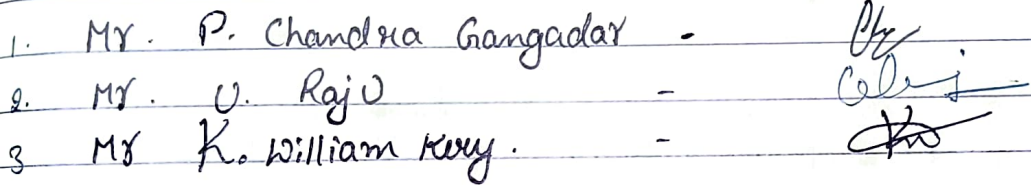 1. Mr. P. Chandra Gangadar -
2. Mr. U. Raju -
3 Mr K. William Kery. -